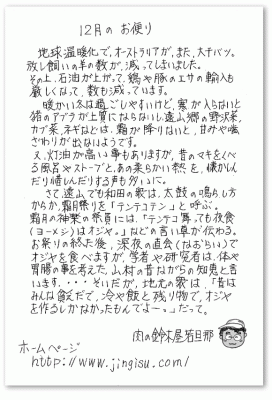 12月の お便り
地球温暖化で、オーストラリアが、また、大干バツ。
放し飼いの羊の数が、減ってしまいました。
その上、石油が上がって、鶏や豚のエサの輸入も
厳しくなって、数も減っています。
暖かい冬は過ごしやすいけど、寒が入らないと
猪のアブラが上質にならないし、遠山郷の野沢菜、
カブ菜、ネギなどは、霜が降りないと、甘みや歯
ざわりが出ないようです。
又、灯油が高い事もありますが、昔のマキをくべ
る風呂やストーブと、あの柔らかい熱を、懐かん
だり惜しんだりする声も多いべ。
さて遠山でも和田の衆は、太鼓の鳴らし方
からか、霜月祭りを「テンテコテン」と呼ぶ。
霜月の神楽の祭言には、「テンテコ舞っても夜食
(ヨーメシ)はオジャ。」などの言い草が伝わる。
お祭りの終た後、深夜の直会(なおらい)で
オジャを食べますが、学者や研究者は、体や
胃腸の事を考えた、山村の昔ながらの知恵と言
います。・・・そいだが、地元の衆は、「昔は
みんな飯だで、冷や飯と残り物で、オジャ
を作るしかなかったもんでよー。」だって。
肉の鈴木屋若旦那
ホームページ
http://www.jingisu.com/